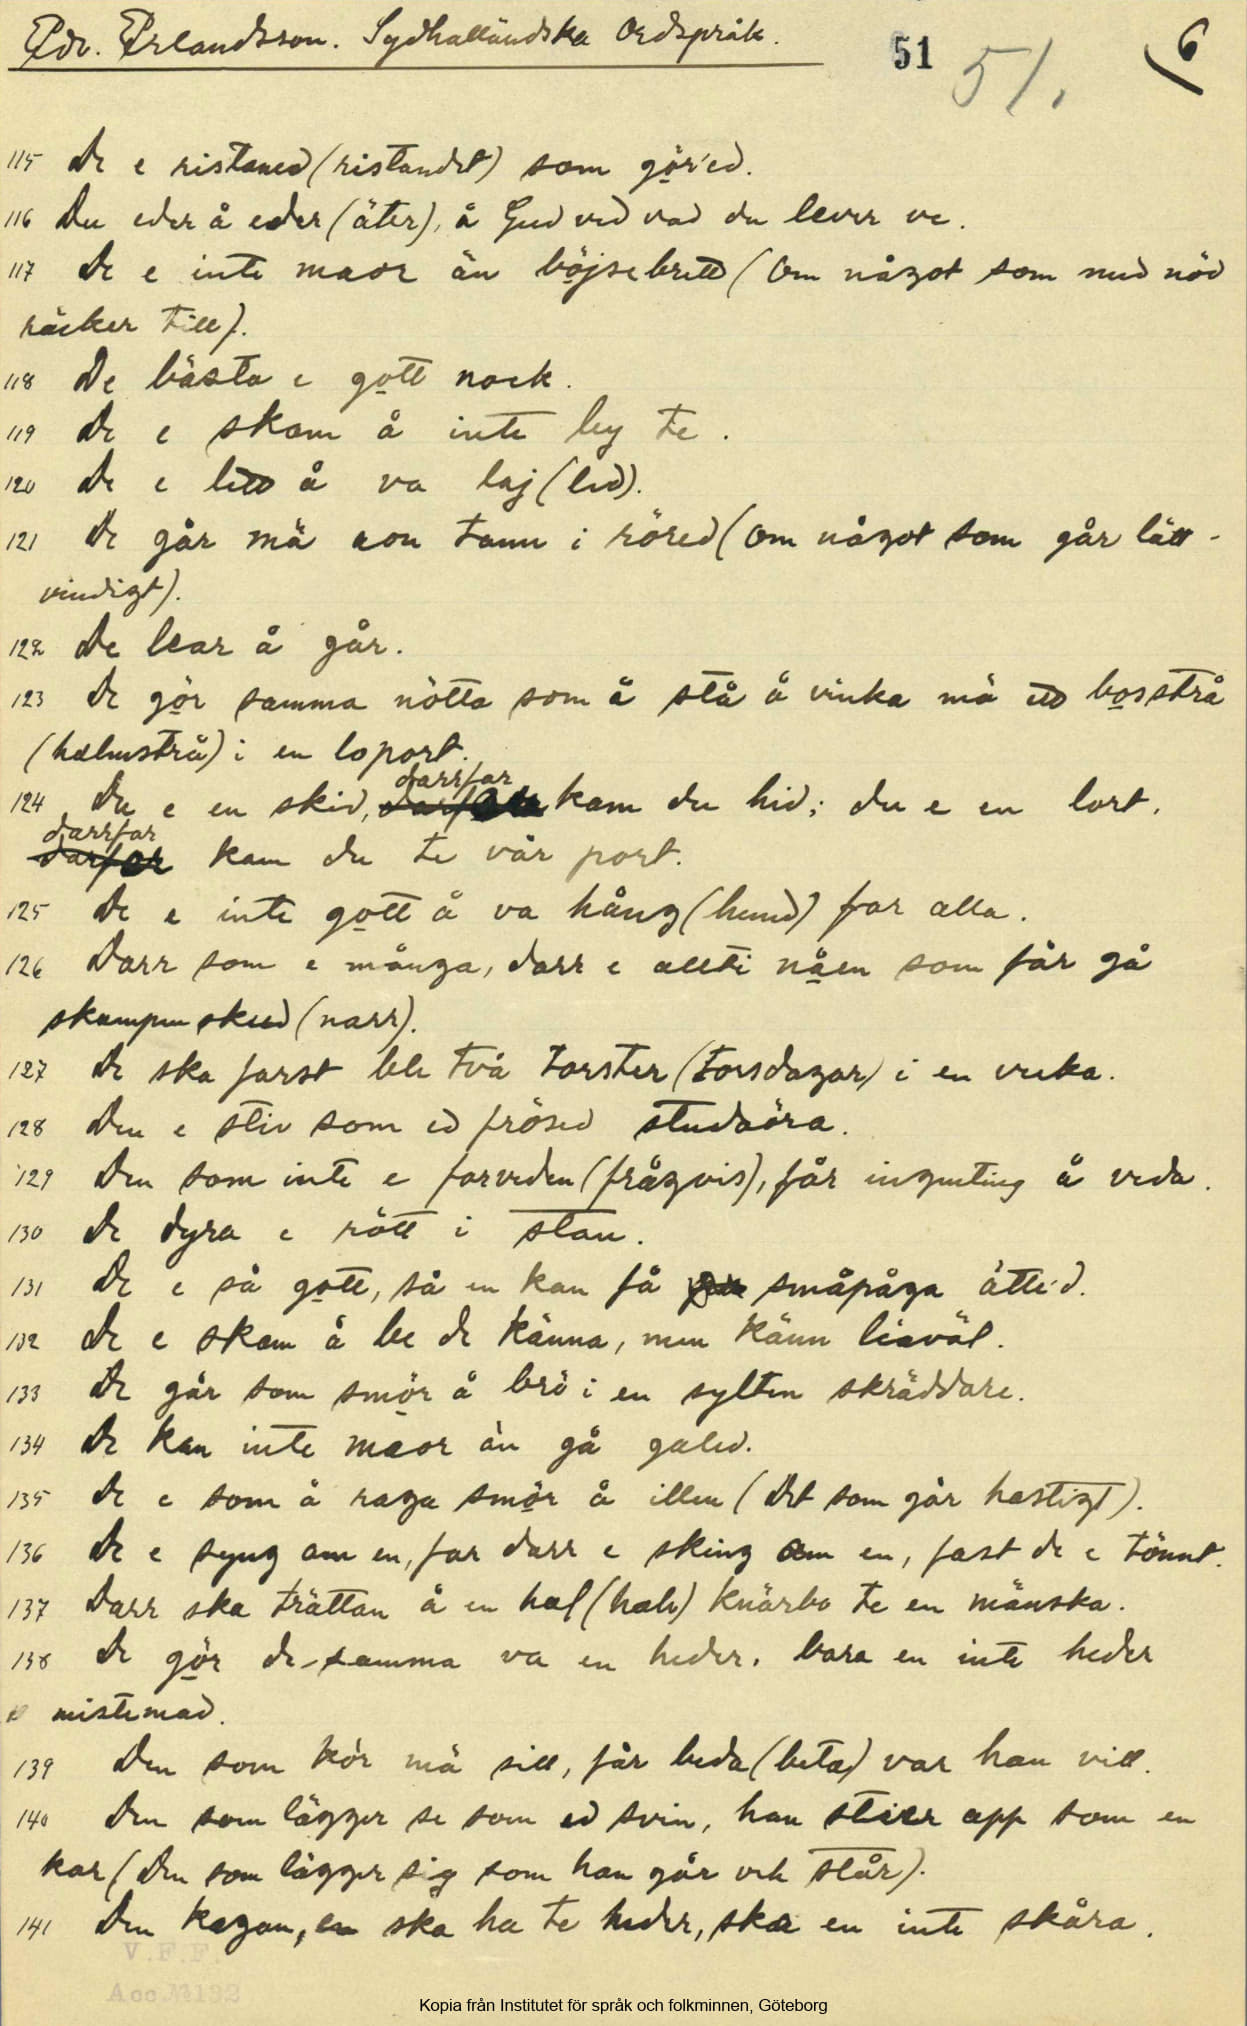 Edv. Erlandsson. Sydhalländska Ordspråk.
51 51. 6
115 De e ristaned (ristandet) som gör'ed.
116 Du eder å eder (äter), å Gud ved vad du lever ve.
117 De e inte maor än böjsebrett (Om något som med nöd
räcker till).
118 De bästa e gott nock.
119 De e skam å inte ley te.
120 De e lett å va laj (led).
121 De går mä aon tann i röred (Om något som går lätt-
vindigt).
122 De lear å går.
123 De gör samma nötta som å stå å vinka mä ett bosstrå
(halmstrå) i en loport.
124 Du e en skid, darrfar kam du hid; du e en lort,
darrfar kam du te vår port.
125 De e inte gott å va hång (hund) far alla.
126 Darr som e många, darr e allti nåen som får gå
skampen skud (narr).
127 De ska farst ble två torster (torsdagar) i en veka.
128 Den e stiv som ed frösed studaöra.
129 Den som inte e farveden (frågvis), får ingenting å veda.
130 De dyra e rött i stan.
131 De e så gott, så en kan få småpåga ätte'd.
132 De e skam å be de känna, men känn liaväl.
133 De går som smör å brö i en sylten skräddare.
134 De kan inte maor än gå galed.
135 De e som å raga smör å illen (Det som går hastigt).
136 De e syng am en, far darr e sking am en, fast de e tönnt.
137 Darr ska trättan å en hal (halv) knärba te en mänska.
138 De gör de-samma va en heder, bara en inte heder
mistemad.
139 Den som kör mä sill, får beda (beta) var han vill.
140 Den som lägger se som ed svin, han stier app som en
kar (Den som lägger sig som han går och står).
141 Den kagan, en ska ha te heder, ska en inte skåra.
V.F.F.
Acc № 132
Kopia från Institutet för språk och folkminnen, Göteborg